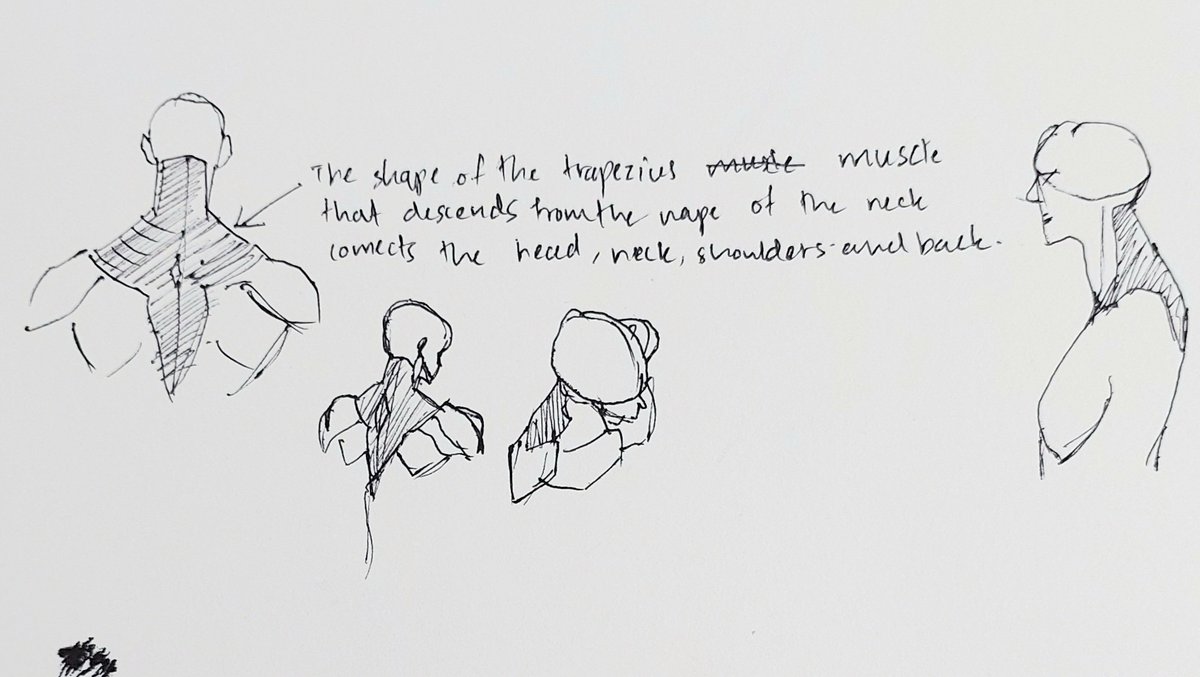 The shape of the trapezius muscle
that descends from the nape of the neck
connects the head, neck, shoulders and back.